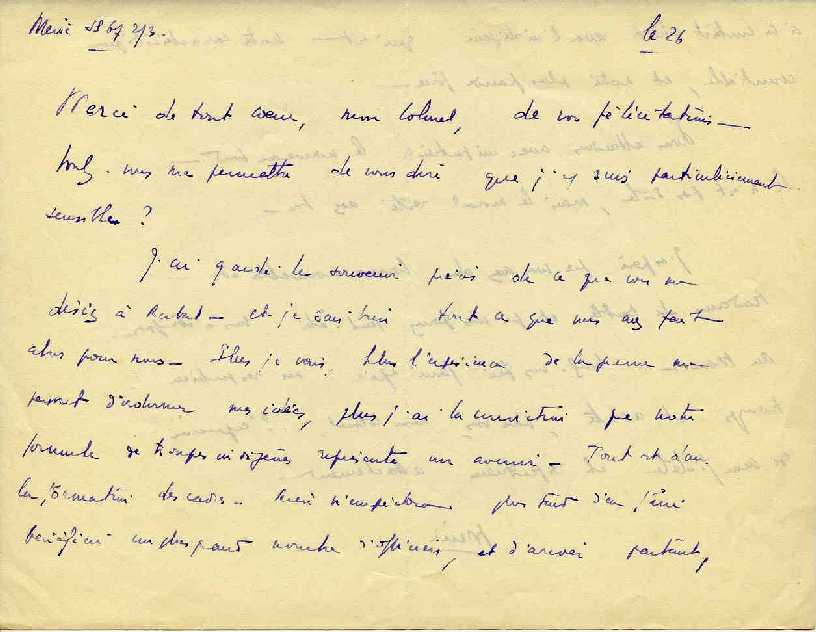 le 26
Merci de tout cœur, mon Colonel, de vos félicitations —
Voulez-vous me permettre de vous dire que j'y suis particulièrement
sensible ?
J'ai gardé le souvenir précis de ce que vous me
disiez à Rabat — et je sais bien tout ce que vous avez fait
alors pour nous — Plus je vais, plus l'expérience de la guerre me
permet d'ordonner mes idées, plus j'ai la conviction que notre
formule de troupes indigènes représente un avenir — Tout est dans
la formation des cadres —
plus tard d'en faire
bénéficier un plus grand nombre d'officiers, et d'avoir partout,